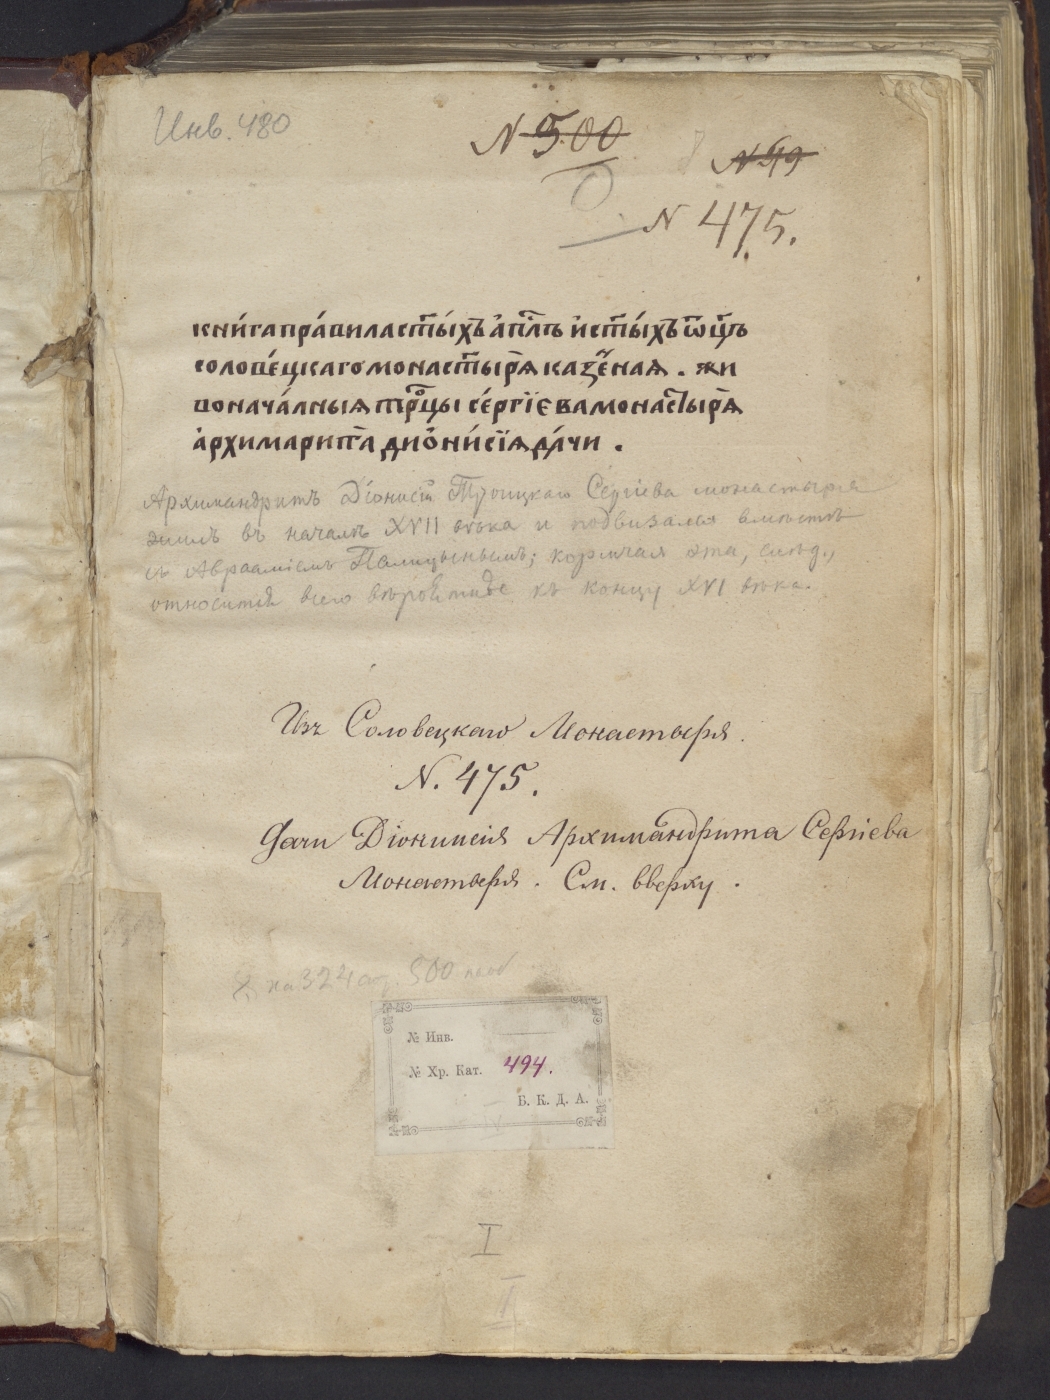 Инв. 480
N 500
N 49
N 475.
кни́га пра́вила ст҃ы́хъ а҆пⷭ҇лъ и҆ ст҃ы́хъ ѿц҃ъ
солове́цкаго монасты́рѧ казе́ннаѧ . жи
воначáлныѧ трⷪ҇цы се́ргїєва монасты́рѧ
а҆рхимари́та дио҆ни́сїѧ да́чи .
Архимандритъ Діонисій Троицкаго Сергіева монастыря
жилъ въ началѣ XVII вѣка и подвизался вмѣстѣ
съ Авраамiемъ Палицынымъ; кормчая эта, слѣд.,
относится всего вѣроятнѣе къ концу XVI вѣка.
Изъ Соловецкаго Монастыря.
N. 475.
Дачи Діонисія Архимандрита Сергіева
Монастыря. См. вверху.
на 324 500
№ Инв.
№ Хр. Кат. 494.
Б. К. Д. А.
IV
I
II